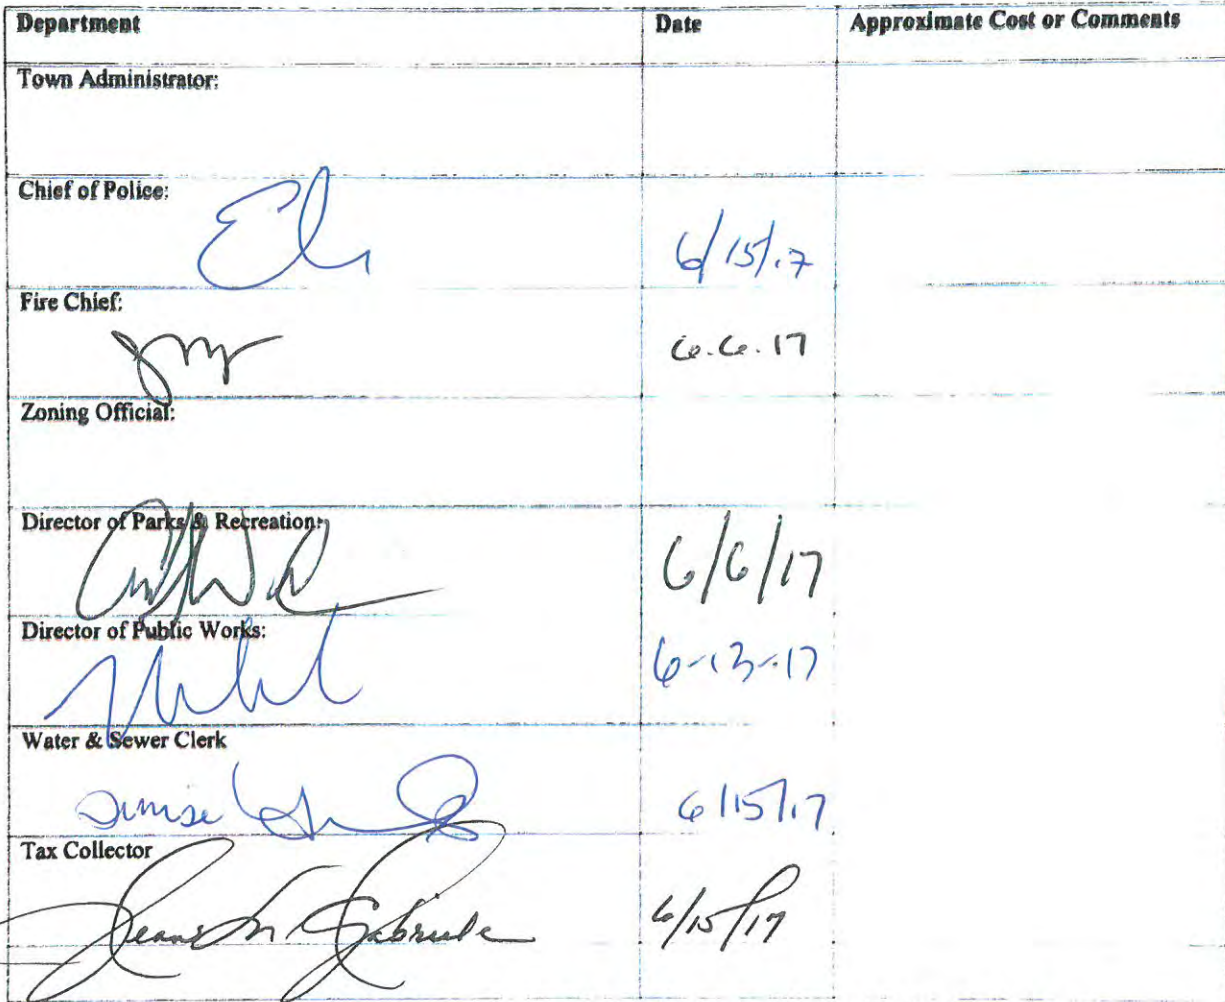 Department Date Approximate Cost or Comments
Town Administrator:
Chief of Police:
6/15/17
Fire Chief:
6.6.17
Zoning Official:
Director of Parks & Recreation:
6/6/17
Director of Public Works:
6-13-17
Water & Sewer Clerk
Denise 6/15/17
Tax Collector
6/15/17